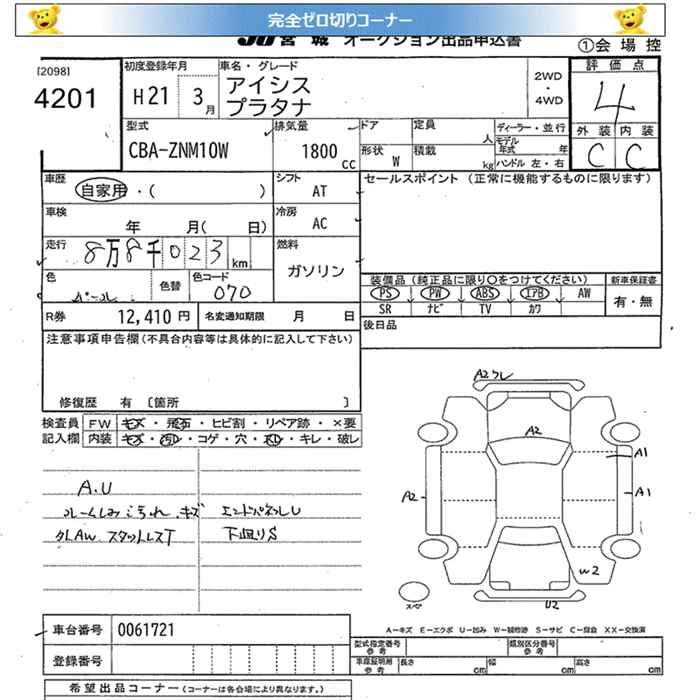 完全ゼロ切りコーナー
JU 宮城 オークション出品申込書
①会場控
[2098]
4201
初度登録年月
H21 3月
車名・グレード
アイシス
プラタナ
2WD
・
4WD
評価点
4
外装 内装
C C
型式
CBA-ZNM10W
排気量
1800 cc
ドア
形状 W
定員 人
積載 kg
ディーラー・並行
モデル年式 年
ハンドル 左・右
車歴
自家用・( )
シフト
AT
セールスポイント (正常に機能するものに限ります)
車検
年 月( 日)
冷房
AC
走行
8万8千023km
燃料
ガソリン
色
パール
色替
色コード
070
装備品(純正品に限り○をつけてください)
新車保証書
PS PW ABS エアB AW
SR ナビ TV カワ
有・無
R券 12,410円
名変通知期限 月 日
後日品
注意事項申告欄(不具合内容等は具体的に記入して下さい)
修復歴 有 [箇所 ]
検査員
記入欄
FW キズ・飛石・ヒビ割・リペア跡・×要
内装 キズ・汚レ・コゲ・穴・スレ・キレ・破レ
A.U
ルームしみ こうれ.キズ
エンドパネルU
外AW スタットレスT
下廻りS
A2 クレ
A2
A1
A2
A1
W2
U2
スペア
A−キズ E−エクボ U−凹み W−補修跡 S−サビ C−腐食 XX−交換済
車台番号 0061721
登録番号
型式指定番号
参考
類別区分番号
参考
車庫証明用
参考
長さ cm
幅 cm
高さ cm
希望出品コーナー(コーナーは各会場により異なります。)